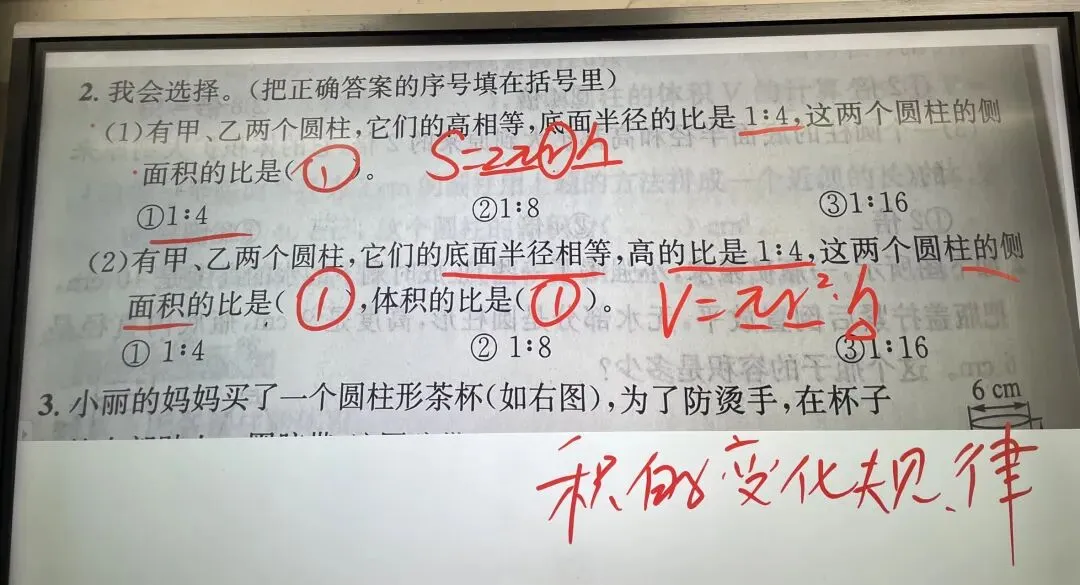 2. 我会选择。(把正确答案的序号填在括号里)
(1)有甲、乙两个圆柱,它们的高相等,底面半径的比是1∶4,这两个圆柱的侧
面积的比是(①)。 S=2πrh
①1∶4 ②1∶8 ③1∶16
(2)有甲、乙两个圆柱,它们的底面半径相等,高的比是1∶4,这两个圆柱的侧
面积的比是(①),体积的比是(①)。 V=πr²·h
①1∶4 ②1∶8 ③1∶16
3. 小丽的妈妈买了一个圆柱形茶杯(如右图),为了防烫手,在杯子
6 cm
积的变化规律